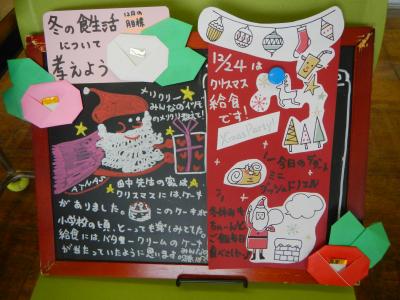 冬の食生活
12月の
目標
について
考えよう
メリクリー
みんなの
ATNAS
田中先生の家は、
クリスマスにはケーキ
がありました。
このケーキ
小学校の頃、とっても楽しみでした。
給食には、バタークリームのケーキ
が当たっていたように思います。
12/24は
クリスマス
給食
です!
Xmas Party!
今日のデザート
ミニ
ブッシュドノエル
冬休みも
ちゃーんと
ご飯を
食べてね